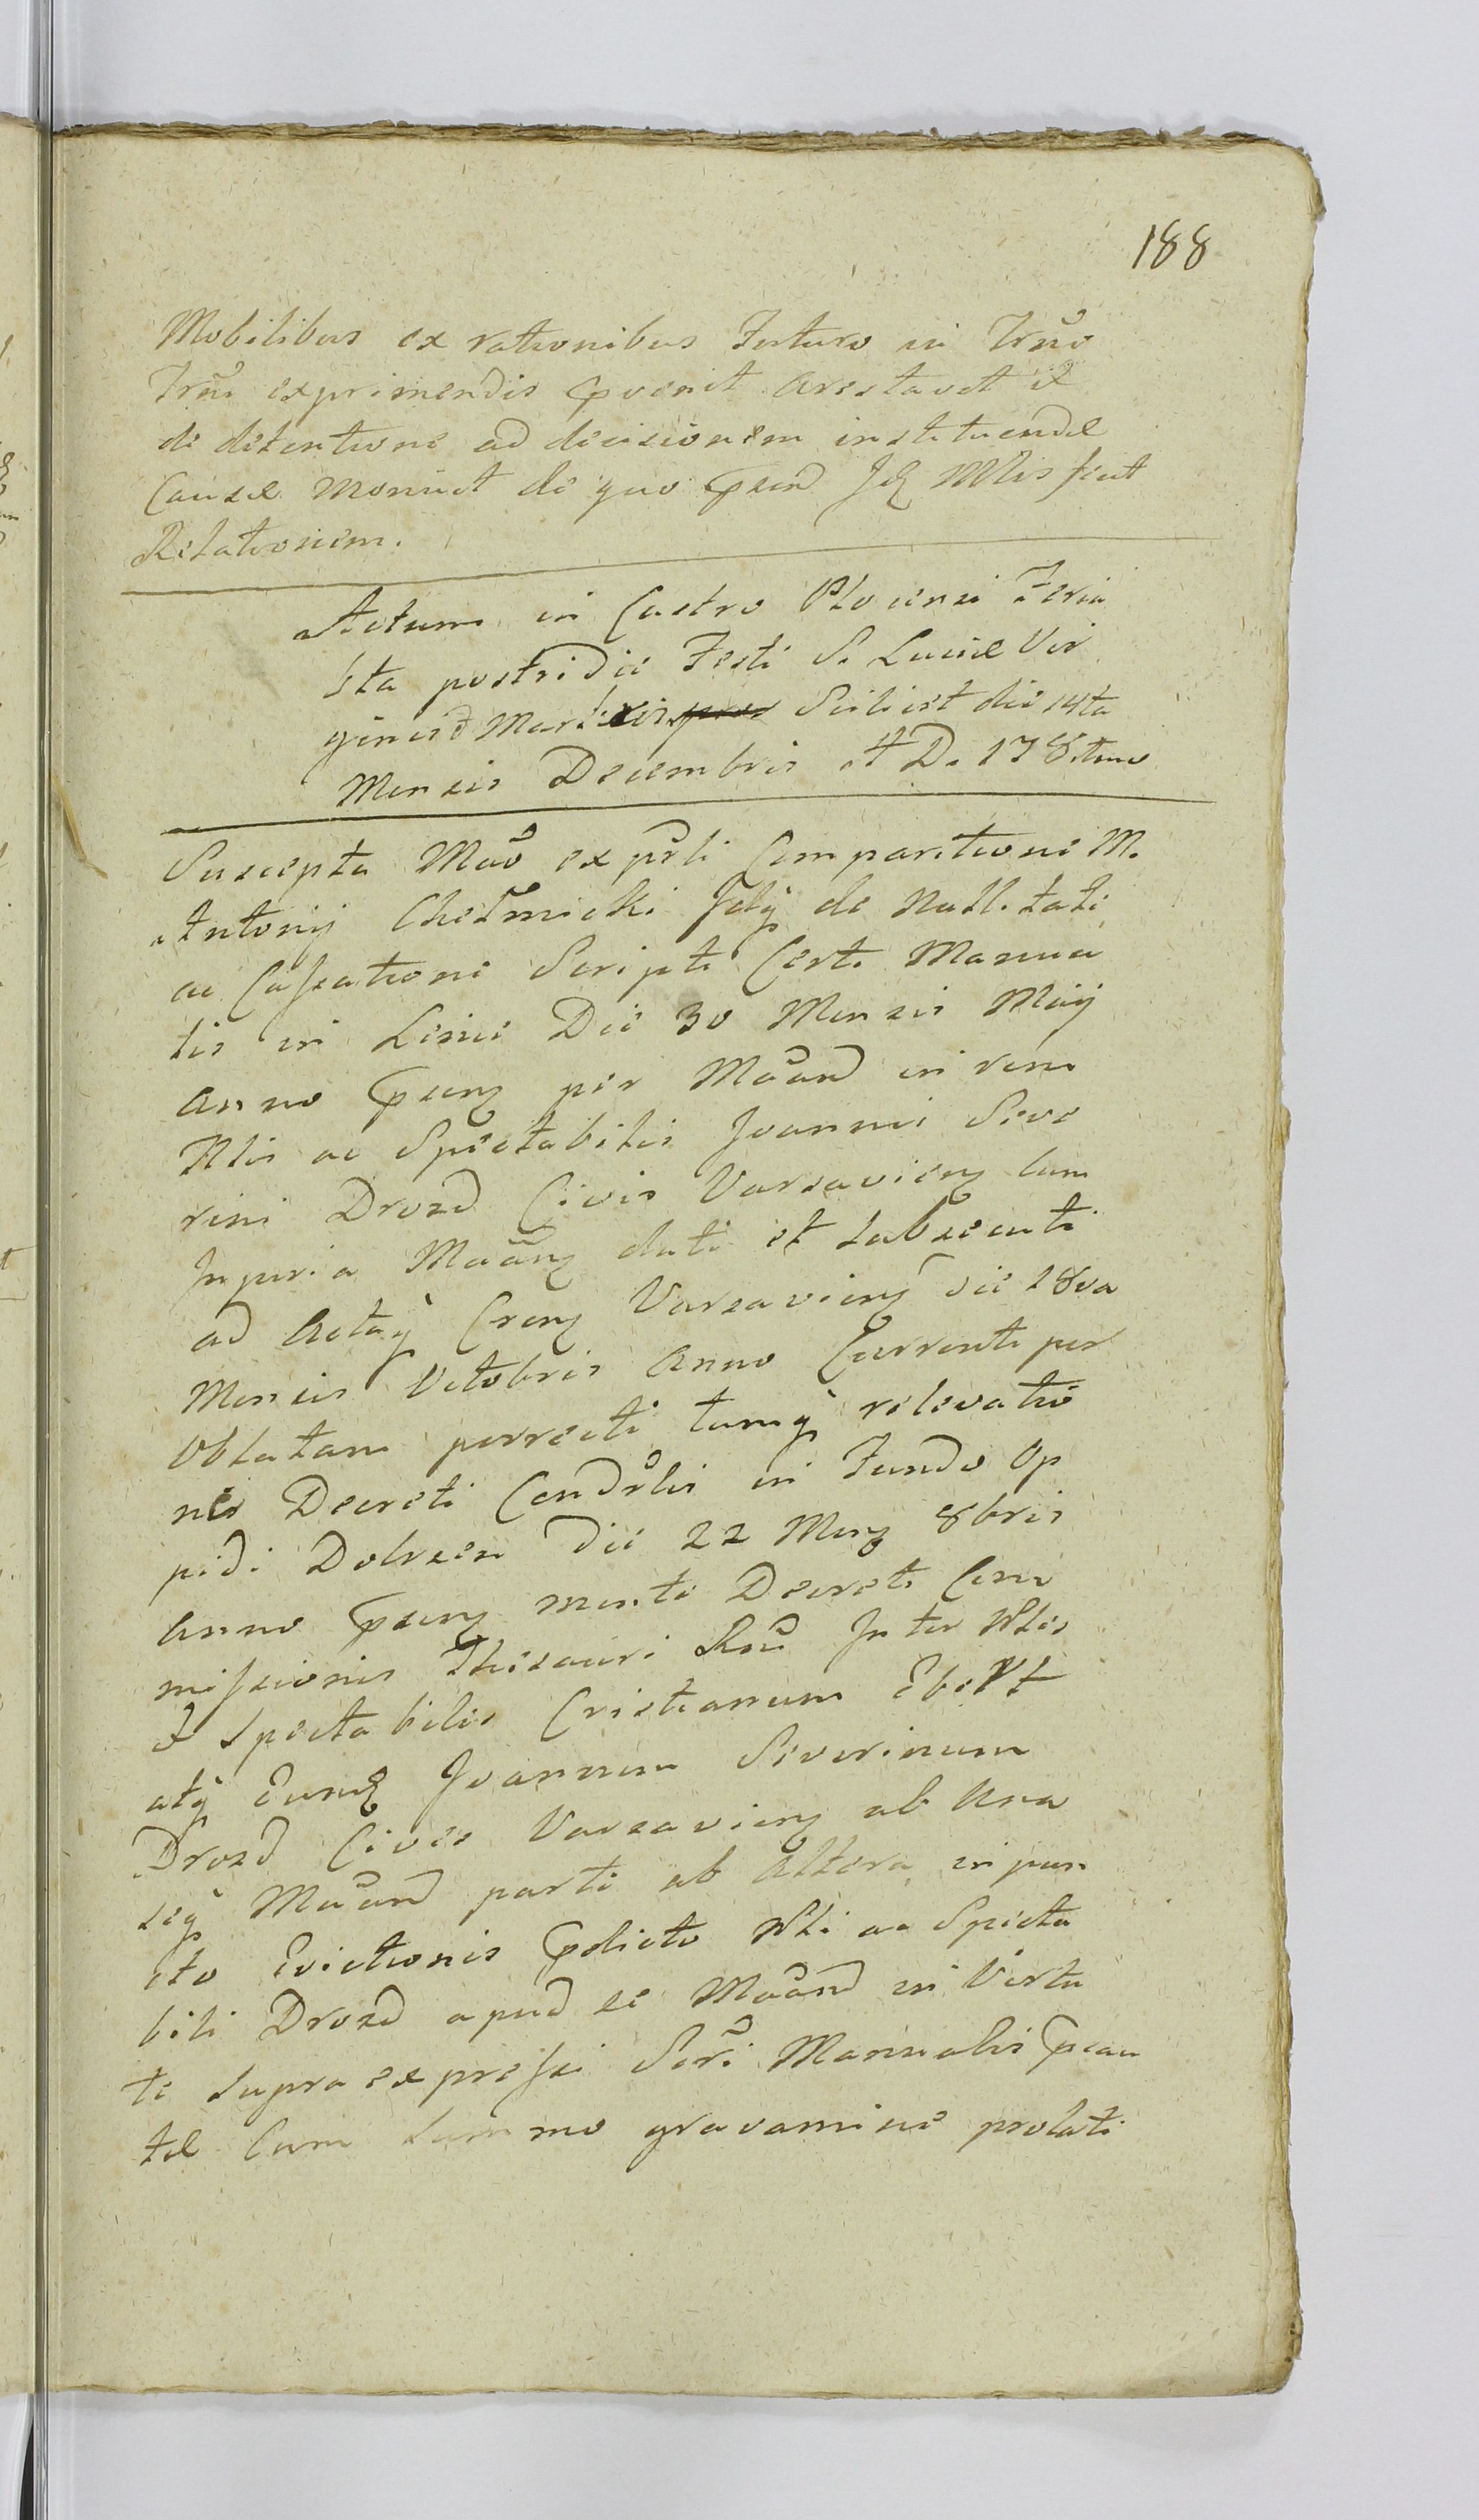 188
Mobilibus ex rationibus Futuro in Trno
Trni exprimendis pvenit arestavit et
de detentione ad decisionem instituendæ
Causæ monuit de quo Jdq Mtis fecit
Relationem.
Actum in Castro Plocensi Feria
6ta postridie Festi S. Luciæ Vir
ginis Martiris Scilicet die 14ta
Mensis Decembris A D. 178
Suscepta Mao ex pñti Comparitione M.
Antonij Chełmicki de Nullitate
ac Cassatione Scripti Certi Manua
lis in Lesnie Die 30 Mensis Maij
Anno per in rem
Nlis ac Spectabilis Joannis Seve
rini Drozd Civis Varsavienq cum
Injuria dati et subsecuti
ad Acta Varsavienq die 18va
Mensis Octobris Anno Currente per
Oblatam porrecti tumq relevatio
nis Decreti Condrlis in Fundo Op
pidi Dobrzen die 22 Menq 8bris
Anno mente Decreti Com
missionis Thesauri Rni Inter Nles
et Spectabiles Cristianum Ebert
atq Eunq Joannem Severinum
Drozd Cives Varsavienq ab Una
seq parte ab Altera in pun
cto Evictionis pdicto Nli ac Specta
bili Drozd apud se in Virtu
te supra expressi Scri Manualis pcau
tæ Cum summo gravamine prolati